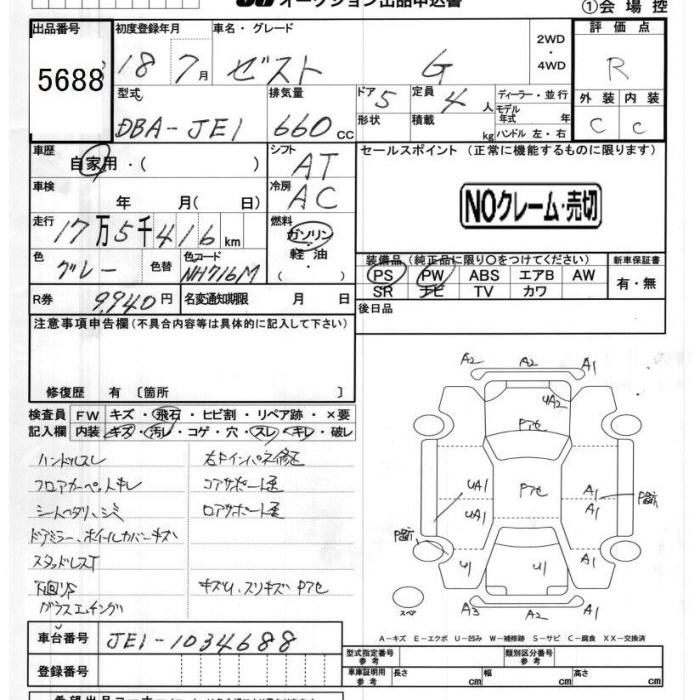 オークション出品申込書
①会場控
出品番号 初度登録年月 車名・グレード 評価点
5688 18 7月 ゼスト G 2WD ・ 4WD R
型式 排気量 ドア 5 定員 4人 ディーラー・並行 外装 内装
DBA-JE1 660cc 形状 積載 kg モデル年式 年 ハンドル 左・右 C C
車歴 自家用・( ) シフト AT セールスポイント (正常に機能するものに限ります)
車検 年 月( 日) 冷房 AC
NOクレーム・売切
走行 17万5千416km 燃料 ガソリン・軽油・
色 グレー 色替 色コード NH716M
装備品 (純正品に限り○をつけてください) 新車保証書
PS PW ABS エアB AW 有・無
SR ナビ TV カワ
R券 9,940円 名変通知期限 月 日 後日品
注意事項申告欄(不具合内容等は具体的に記入して下さい)
修復歴 有 〔箇所 〕
検査員 FW キズ・飛石・ヒビ割・リペア跡・×要
記入欄 内装 キズ・汚レ・コゲ・穴・スレ・キレ・破レ
ハンドルスレ 右Fインパネ修正
フロアカーペットキレ コアサポート歪
シートヘタリ、シミ ロアサポート歪
ドアミラー、ホイールカバーキズ
スタッドレスT
下回りS キズU、スリキズ Pアセ
ガラスエッチング
A2 A2 A1
UA2
Pアセ
UA1 Pアセ A1 P箇所
UA1 A1
P箇所
U1 U1
A3 A2 A1
スペア
A-キズ E-エクボ U-凹み W-補修跡 S-サビ C-腐食 XX-交換済
車台番号 JE1-1034688
登録番号
型式指定番号 参考 類別区分番号 参考
車庫証明用 参考 長さ cm 幅 cm 高さ cm